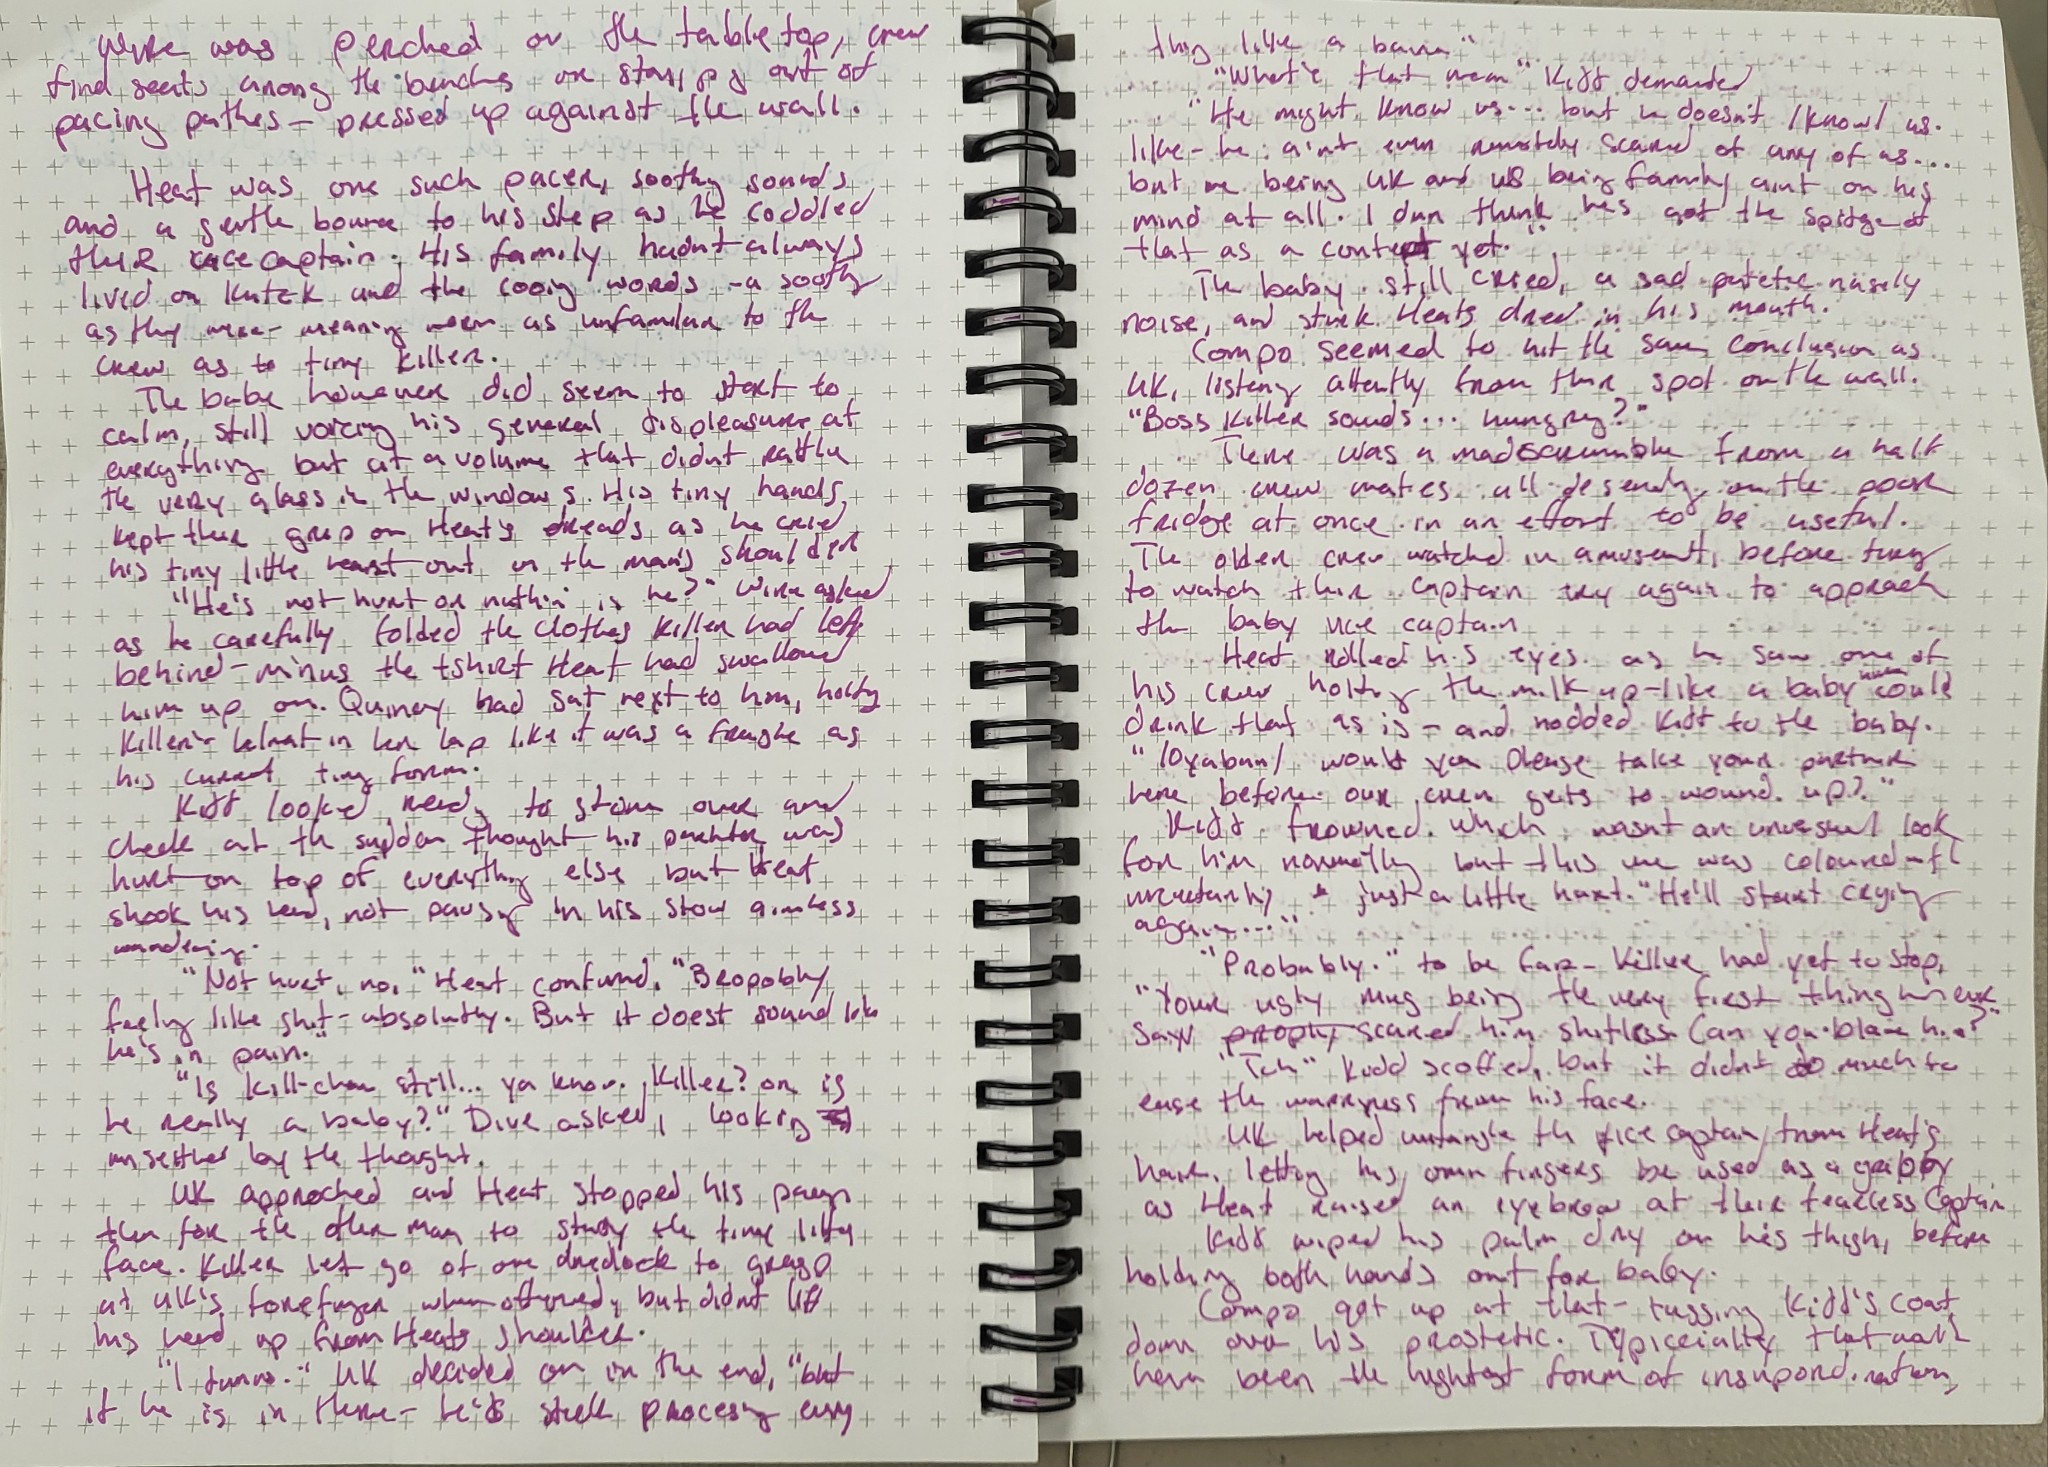 Wire was perched on the tabletop, crew
find seats among the benches or staying out of
pacing pathes - pressed up against the wall.
Heat was one such pacer, soothy sounds
and a gentle bounce to his step as he coddled
their vice captain. His family hadnt always
lived on Kutck and the cooing words - a soothy
as they were - meaning were as unfamilar to the
crew as to tiny Killer.
The baby however did seem to start to
calm, still voicing his general displeasure at
everything but at a volume that didnt rattle
the very glass in the windows. His tiny hands
kept their grip on Heat's dreads as he cried
his tiny little heart out in the man's shoulder
"He's not hurt or nuthin' is he?" Wire asked
as he carefully folded the clothes Killer had left
behind - minus the tshirt Heat had swallowed
him up on. Quincy had sat next to him, holdy
Killer's helmat in her lap like it was a fragile as
his current tiny form.
Kidd looked ready to storm over and
check at the suddan thought his partner was
hurt on top of everything else but Heat
shook his head, not pausing in his slow aimless
wandering.
"Not hurt, no," Heat confirmd, "Bropobly
feeling like shit - absolutly. But it doest sound like
he's in pain."
"Is Kill-chan still... ya know. Killer? or is
he really a baby?" Dive asked, looking
unsettled by the thought.
UK approched and Heat stopped his pacyn
then for the other man to study the tiny litty
face. Killer let go of one dredlock to grasp
at UK's forefinger when offered, but didn't lift
his head up from Heats shoulder.
"I dunno." UK decided on in the end, "but
if he is in there - he's stuck procesing every
thing like a bairn"
"What's that mean" Kidd demanded
"He might know us... but he doesn't /know/ us.
like - he aint even remotely scared of any of us...
but me being UK and us being family aint on his
mind at all. I dun think he's got the spitge of
that as a contept yet."
The baby still cried, a sad patetic nasely
noise, and stuck Heats dred in his mouth.
Compo seemed to hit the same conclusion as
UK, listeny attently from their spot on the wall.
"Boss Killer sounds... hungry?"
There was a mad scramble from a half
dozen crew mates all desendy on the poor
fridge at once in an effort to be useful.
The older crew watched in amusemt, before turny
to watch their captain try again to approach
the baby vice captain
Heat rolled his eyes as he saw one of
his crew holding the milk up - like a baby human could
drink that as is - and nodded Kidd to the baby.
"/Oyabun/ would you please take your partner
here before our crew gets to wound up?"
Kidd frowned. which wasnt an unusual look
for him normally but this one was coloured wth
uncertainty + just a little hurt. "He'll start crying
again..."
"Probably." to be fair - Killer had yet to stop,
"Your ugly mug being the very first thing he ever
saw prophly scared him shitless. Can you blame him?"
"Tch" Kidd scoffed, but it didnt do much to
ease the warryness from his face.
UK helped untangle the vice captain from Heat's
hair, letting his own fingers be used as a gripby
as Heat raised an eyebrow at their fearless Captain
Kidd wiped his palm dry on his thigh, before
holding both hands out for baby.
Compo got up at that - tugging Kidd's coat
down over his prostetic. Typicially that wald
have been the hightest form of insupordination,